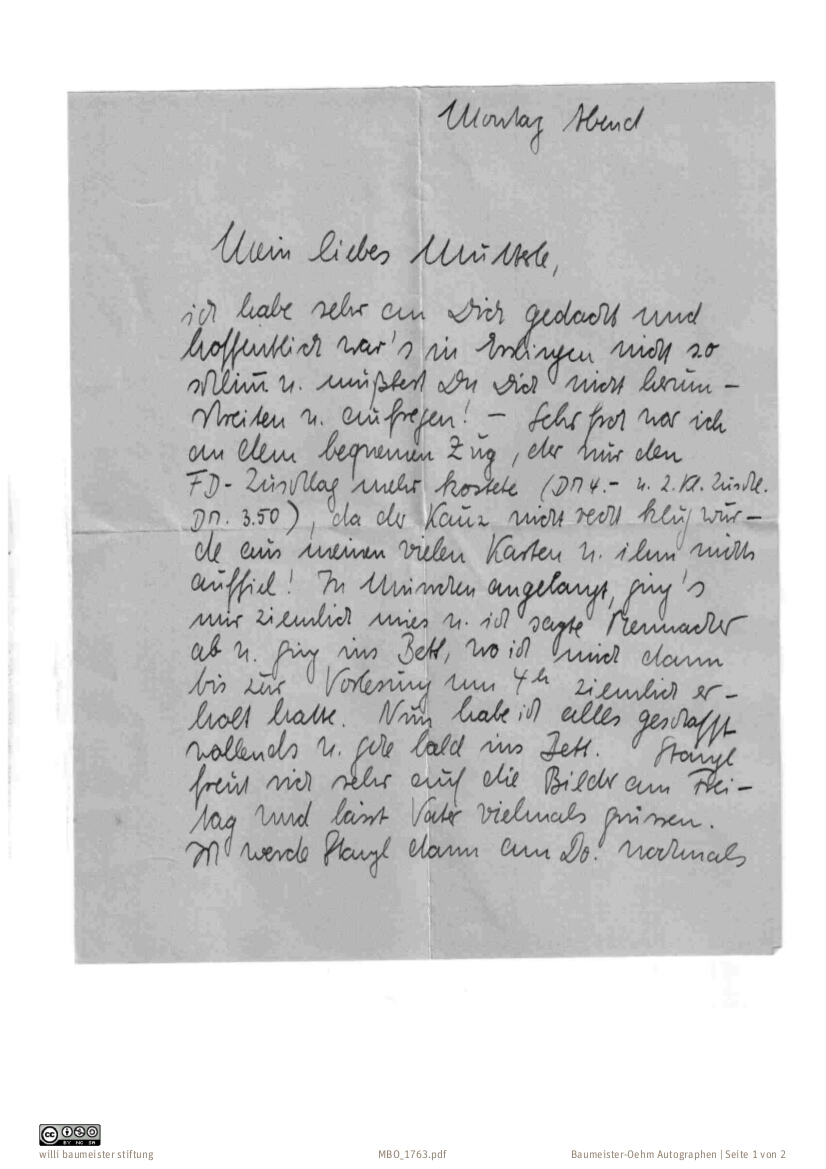 Montag Abend
Mein liebes Mütterle,
ich habe sehr an Dich gedacht und
hoffentlich war's in Esslingen nicht so
schlim̄ u. mußtest Du Dich nicht herum-
streiten u. aufregen! – Sehr froh war ich
an dem bequemen Zug, der nur den
FD-Zuschlag mehr kostete (DM 4.- u. 2. Kl. Zuschl.
DM. 3.50), da der Kauz nicht recht klug wur-
de aus meinen vielen Karten u. ihm nichts
auffiel! In München angelangt, ging's
mir ziemlich mies u. ich sagte
ab u. ging ins Bett, wo ich mich dann
bis zur Vorlesung um 4h ziemlich er-
holt hatte. Nun habe ich alles geschafft
vollends u. gehe bald ins Bett. Stangl
freut sich sehr auf die Bilder am Frei-
tag und lässt Vater vielmals grüssen.
Ich werde Stangl dann am Do. nochmals
willi baumeister stiftung
MBO_1763.pdf
Baumeister-Oehm Autographen | Seite 1 von 2